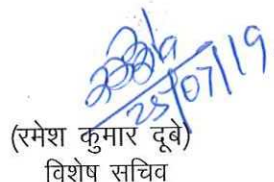 25/07/19
(रमेश कुमार दूबे)
विशेष सचिव